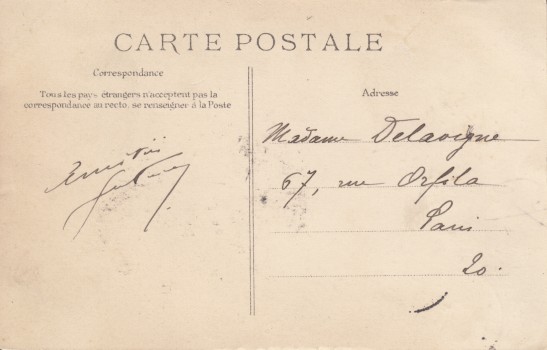 CARTE POSTALE
Correspondance
Tous les pays étrangers n'acceptent pas la
correspondance au recto. se renseigner à la Poste
Adresse
Madame Delavigne
67, rue Orfila
Paris
20.